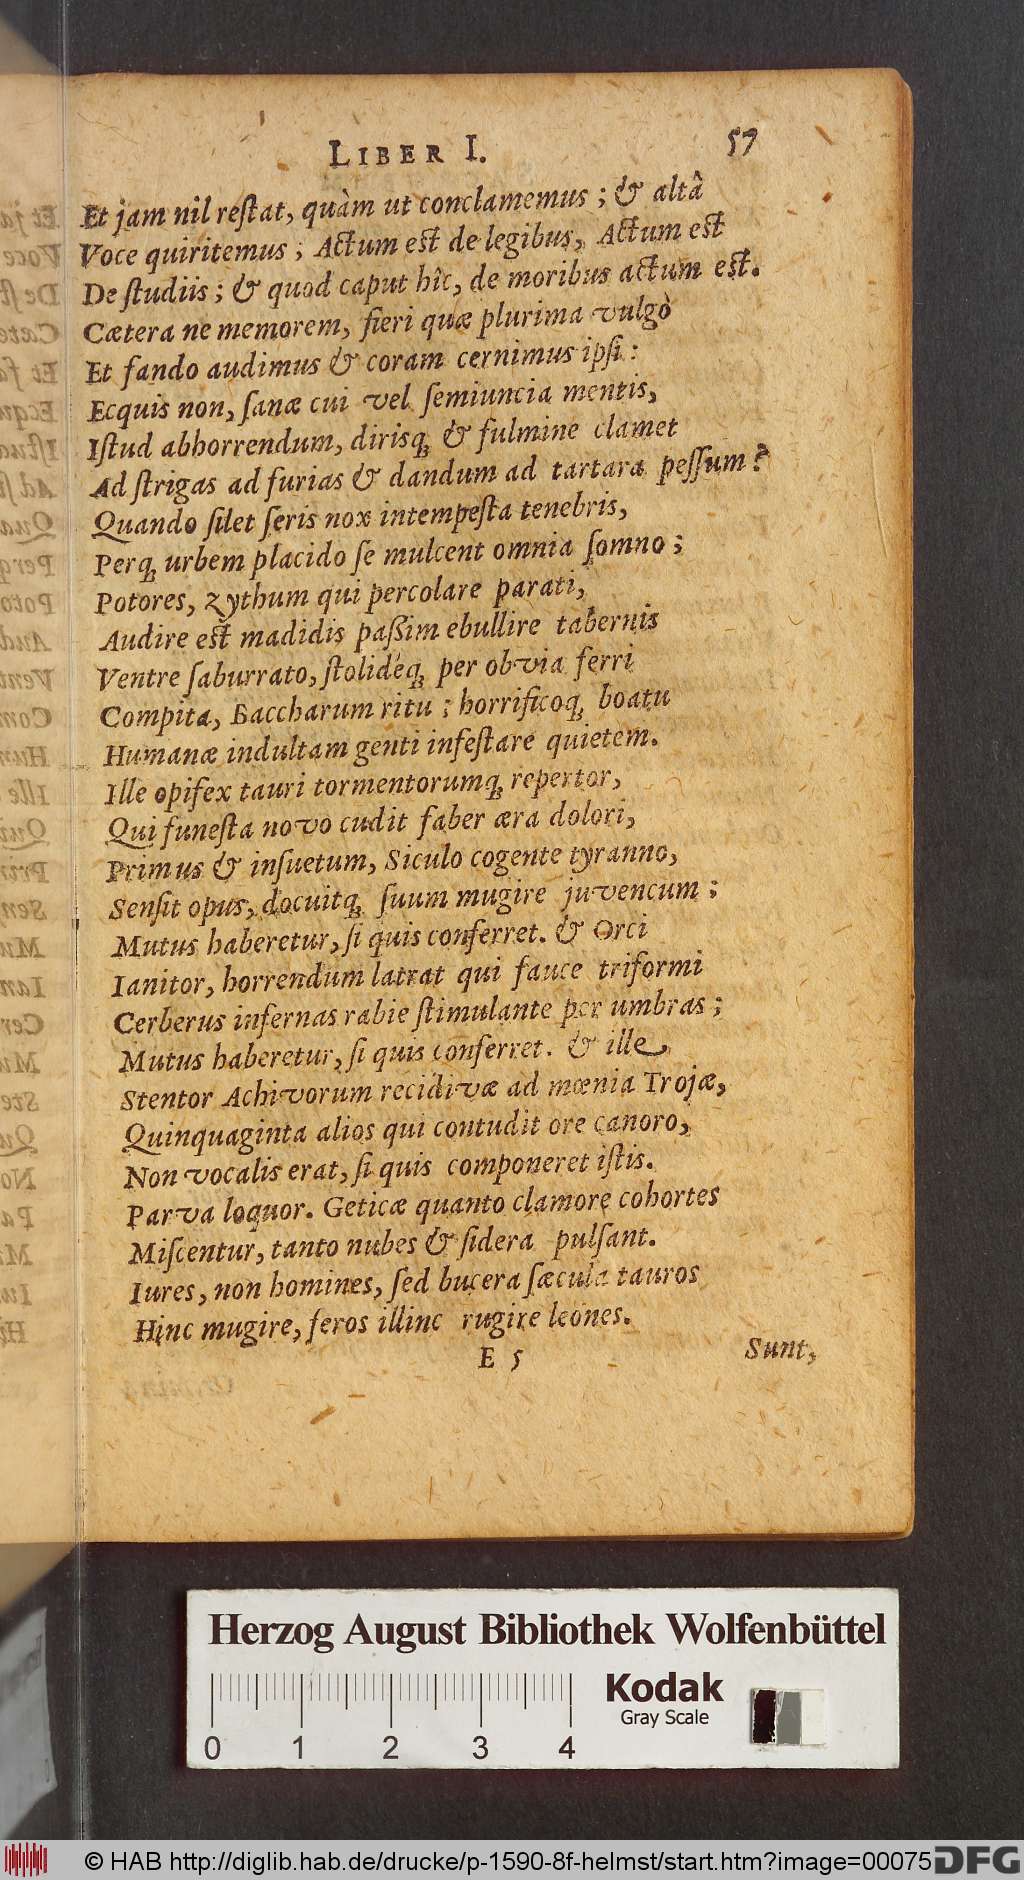 LIBER I. 57
Et jam nil restat, quàm ut conclamemus; & altâ
Voce quiritemus; Actum est de legibus, Actum est
De studiis; & quod caput hîc, de moribus actum est.
Cætera ne memorem, fieri quæ plurima vulgò
Et fando audimus & coram cernimus ipsi:
Ecquis non, sanæ cui vel semiuncia mentis,
Istud abhorrendum, dirisq; & fulmine clamet
Ad strigas ad furias & dandum ad tartara pessum?
Quando silet seris nox intempesta tenebris,
Perq; urbem placido se mulcent omnia somno;
Potores, zythum qui percolare parati,
Audire est madidis paßim ebullire tabernis
Ventre saburrato, stolidéq; per obvia ferri
Compita, Baccharum ritu; horrificoq; boatu
Humanæ indultam genti infestare quietem.
Ille opifex tauri tormentorumq; repertor,
Qui funesta novo cudit faber æra dolori,
Primus & insuetum, Siculo cogente tyranno,
Sensit opus, docuitq; suum mugire juvencum;
Mutus haberetur, si quis conferret. & Orci
Ianitor, horrendum latrat qui fauce triformi
Cerberus infernas rabie stimulante per umbras;
Mutus haberetur, si quis conferret. & ille
Stentor Achivorum recidivæ ad mœnia Trojæ,
Quinquaginta alios qui contudit ore canoro,
Non vocalis erat, si quis componeret istis.
Parva loquor. Geticæ quanto clamore cohortes
Miscentur, tanto nubes & sidera pulsant.
Iures, non homines, sed bucera sæcula tauros
Hinc mugire, feros illinc rugire leones.
E 5 Sunt,
Herzog August Bibliothek Wolfenbüttel
Kodak
Gray Scale
0 1 2 3 4
© HAB http://diglib.hab.de/drucke/p-1590-8f-helmst/start.htm?image=00075 DFG